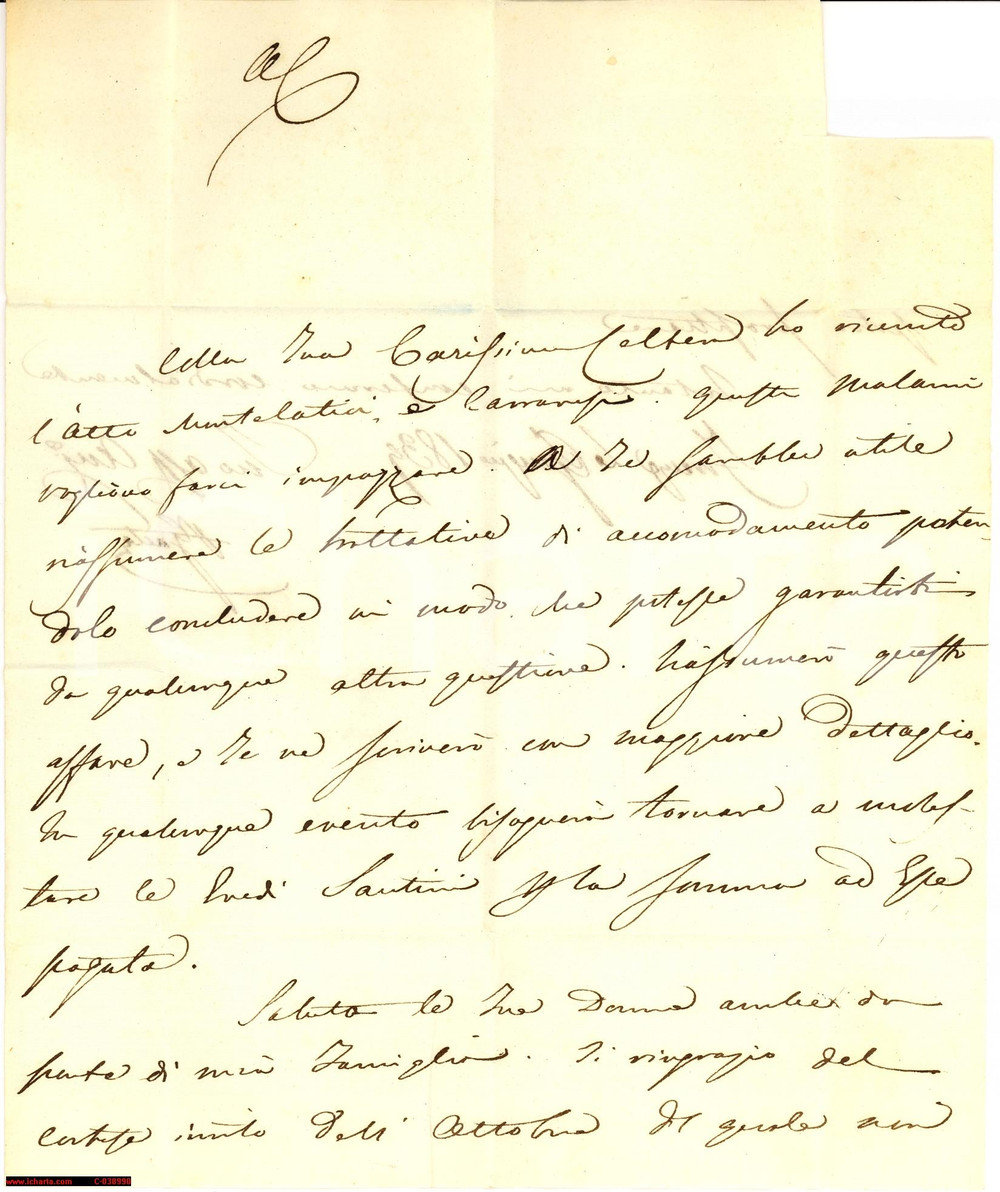 Colla Tua Carissima lettera ho ricevuto
l'atto Montelatici, e Carraresi. Questi malanni
vogliono farci impazzare. A Te sarebbe utile
riassumere le trattative di accomodamento poten-
dolo concludere in modo che potesse garantirti
da qualunque altra questione. Riassumerò questo
affare, e Te ne scriverò con maggiore dettaglio.
In qualunque evento bisognerà tornare a moles-
tare le Eredi Santini p la somma ad Esse
pagata.
Saluta le Tue Donne anche da
parte di mia Famiglia. Ti ringrazio del
cortese invito dell' Ottobre del quale non
www.icharta.com C-038990